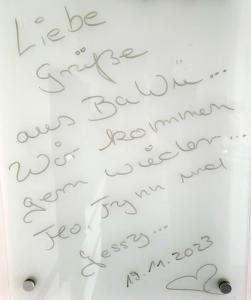 Liebe
Grüße
aus BaWü...
Wir kommen
gern wieder...
Teo, Fynn und
Jessy...
19.11.2023